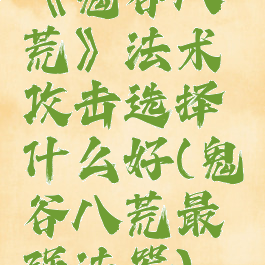 《鬼谷八
荒》法术
攻击选择
什么好(鬼
谷八荒最
强法器)